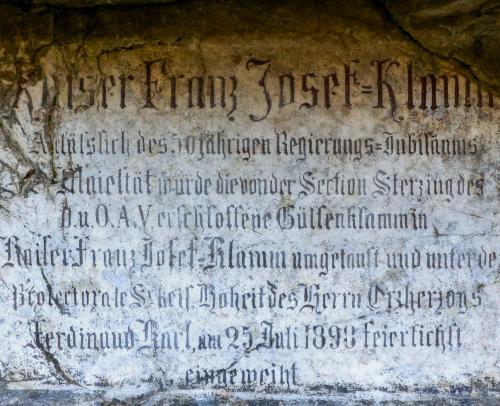 Kaiser Franz Josef=Klamm
Anläßlich des 50jährigen Regierungs=Jubiläums
Majestät wurde die von der Section Sterzing des
D.u.O.A.V erschlossene Gilfenklamm in
Kaiser Franz Josef=Klamm umgetauft und unter de
Protectorate Sr keis. Hoheit des Herrn Erzherzogs
Ferdinand Karl, am 25. Juli 1898 feierlichst
eingeweiht